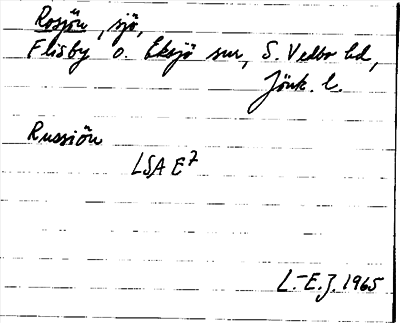 Rosjön, sjö,
Flisby o. Eksjö snr, S. Vedbo hd,
Jönk. l.
Russiön
LSA E7
L.-E.J. 1965